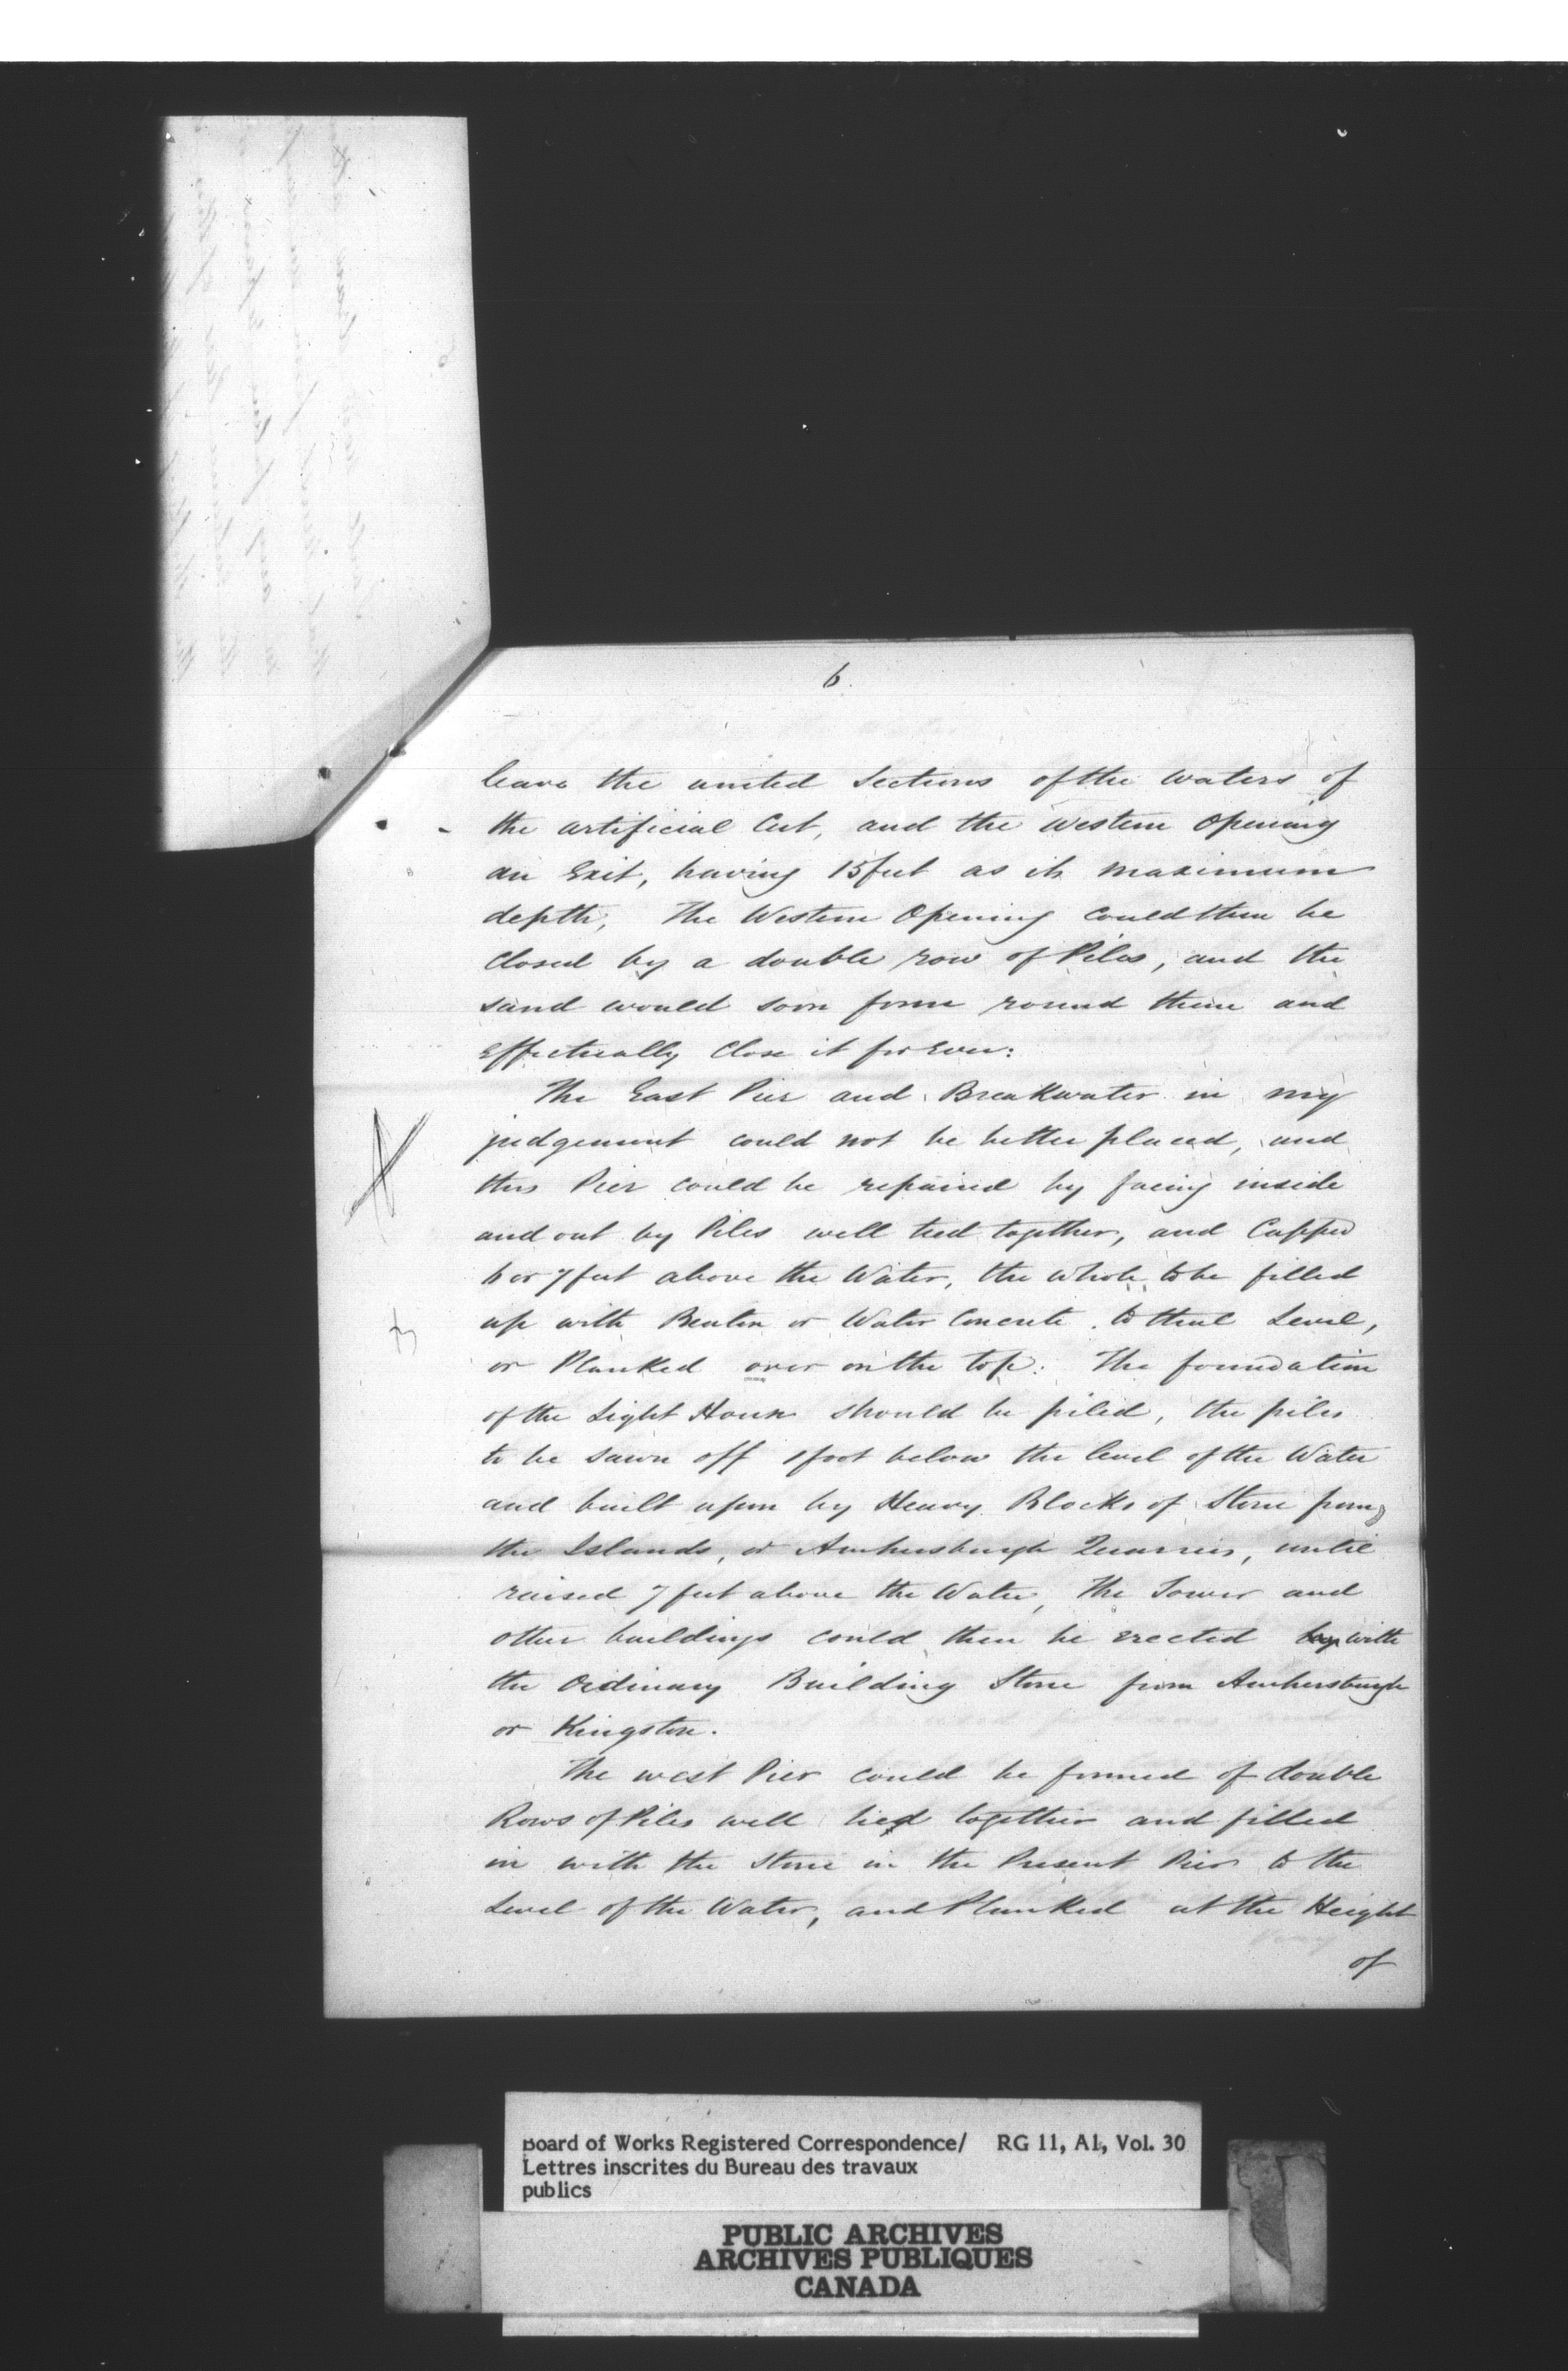 6.
leave the united Sections of the waters of
the artificial Cut, and the western Opening
an Exit, having 15 feet as its maximum
depth; The Western Opening could then be
Closed by a double row of Piles, and the
sand would soon form round them and
Effectually Close it for Ever:
The East Pier and Breakwater in my
judgement could not be better placed, and
this Pier could be repaired by facing inside
and out by Piles well tied together, and Capped
6 or 7 feet above the Water, the whole to be filled
up with Beaton or Water Concrete to that Level,
or Planked over on the top. The foundation
of the Light House should be piled, the piles
to be sawn off 1 foot below the level of the Water
and built upon by Heavy Blocks of Stone from
the Islands, or Amhersburgh Quarries, until
raised 7 feet above the Water, The Tower and
other buildings could then be erected by with
the Ordinary Building Stone from Amhersburgh
or Kingston.
The west Pier could be formed of double
Rows of Piles well tied together and filled
in with the Stone in the Present Pier to the
Level of the Water, and Planked at the Height
of
Board of Works Registered Correspondence/ RG 11, A1, Vol. 30
Lettres inscrites du Bureau des travaux
publics
PUBLIC ARCHIVES
ARCHIVES PUBLIQUES
CANADA